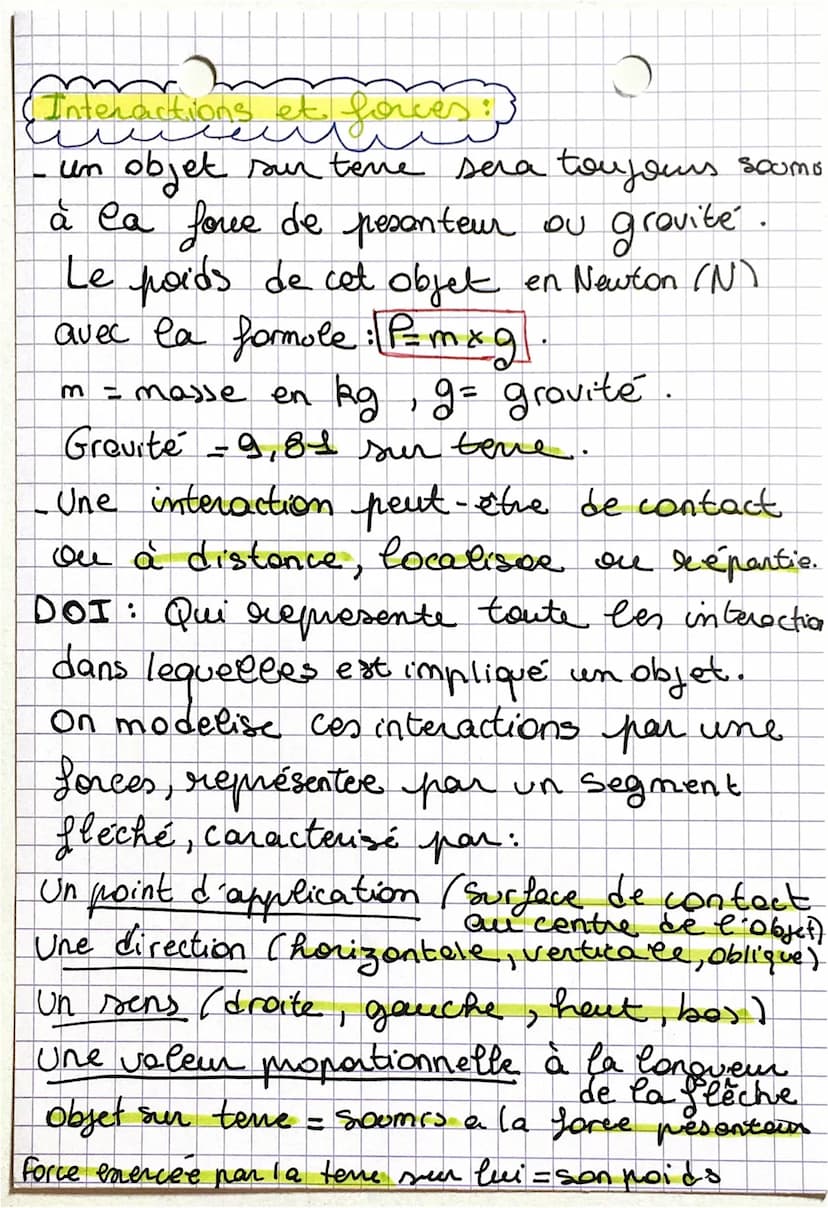 Interactions et forces :
- un objet sur terre sera toujours soumis
à la force de pesanteur ou gravité.
Le poids de cet objet en Newton (N)
avec la formole : P = m x g.
m = masse en kg, g = gravité.
Gravité = 9,81 sur terre.
- Une interaction peut-être de contact
ou à distance, localisée ou répartie.
DOI : Qui represente toute les interaction
dans lequelles est impliqué un objet.
On modelise ces interactions par une
forces, représentée par un segment
fléché, caracterisé par :
Un point d'application (surface de contact
au centre de l'objet)
Une direction (horizontale, verticale, oblique)
Un sens (droite, gauche, haut, bas)
Une valeur proportionnelle à la longueur
de la flêche
Objet sur terre = soumis a la force pesanteur
Force exercée par la terre sur lui = son poids